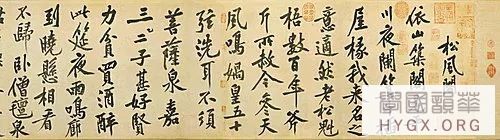 松風閣
依山築閣
川夜闌箕
屋椽我來名之
意適然老松魁
梧數百年斧
斤所赦今參天
風鳴媧皇五十
弦洗耳不須
菩薩泉嘉
二三子甚好賢
力貧買酒醉
此筵夜雨鳴廊
到曉懸相看
不歸臥僧氈泉
學國韻華
HYGX.ORG